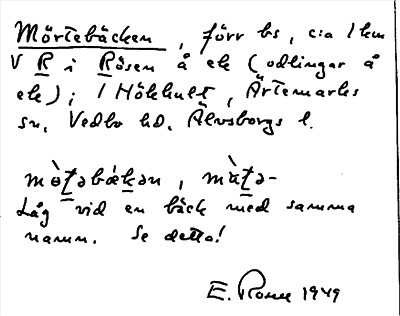 Mörtebäcken, förr bs, c:a 1 km
V R i Rösen å ek (odlingar å
ek); i Hökhult, Ärtemarks
sn, Vedbo hd. Älvsborgs l.
mø̀ṯəbæ̀ḵən, mæ̀ṯə-
Låg vid en bäck med samma
namn. Se detta!
E. Rosell 1949